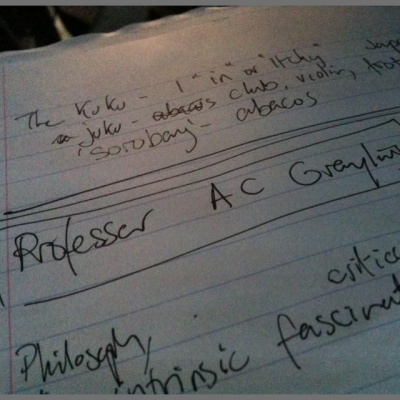 The Kuku - 1 "in" or "Itchy" Japa
juku - abacus club, violin, frot
'sorobang' - abacos
Professer AC Grayling
critica
Philosophy,
intrinsic fascinat